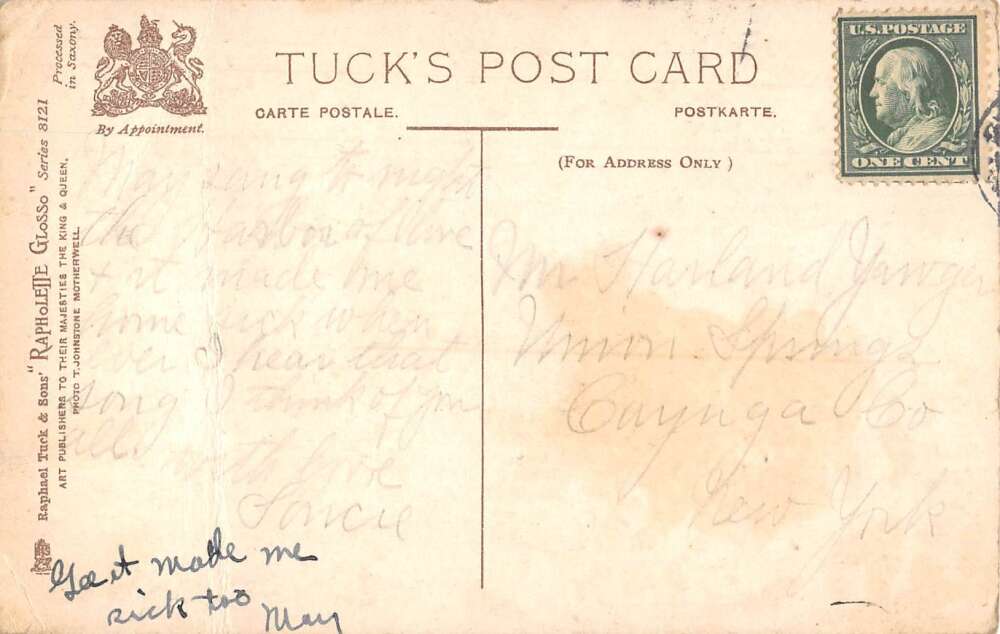 TUCK'S POST CARD
CARTE POSTALE.
POSTKARTE.
(FOR ADDRESS ONLY)
By Appointment.
Processed
in Saxony.
Raphael Tuck & Sons' "RAPHOLETTE GLOSSO" Series 8121
ART PUBLISHERS TO THEIR MAJESTIES THE KING & QUEEN.
PHOTO T. JOHNSTONE MOTHERWELL.
U.S. POSTAGE
ONE CENT
May sang to night
the Harbor of love
& it made me
home sick when
ever I hear that
song I think of you
all.
with love
Gee it made me
sick too
May
Mr Harland Yawger
Union Springs
Cayuga Co
New York